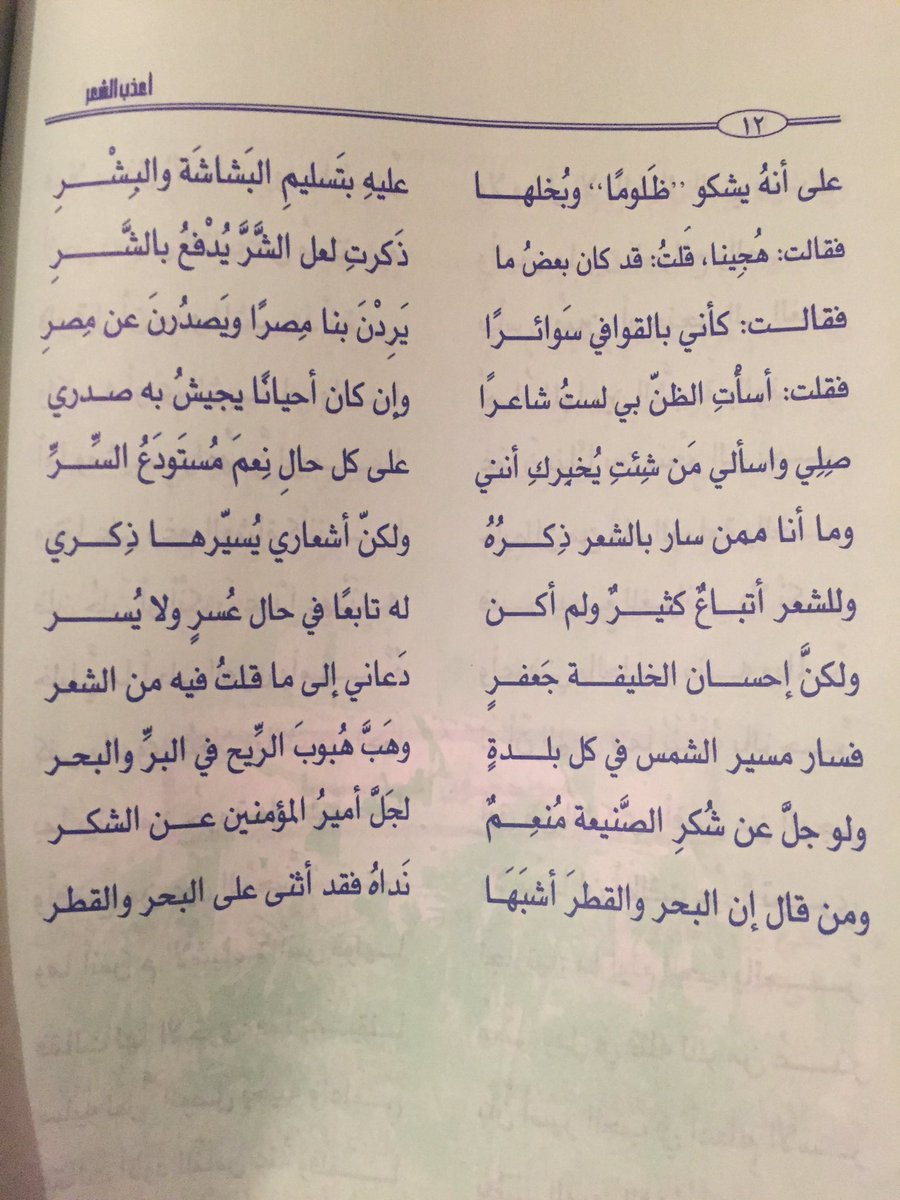 أعذب الشعر
١٢
على أنهُ يشكو ,,ظَلومًا,, وبُخلهـــا عليهِ بتَسليمِ البَشاشَة والبِشْـــرِ
فقالت: هُجِينا، قَلتُ: قد كان بعضُ ما ذَكرتِ لعل الشَّرَّ يُدْفعُ بالشَّـــرِ
فقالـــت: كأني بالقوافي سَوائـــرًا يَرِدْنَ بنا مِصرًا ويَصدُرنَ عن مِصرِ
فقلت: أسأْتِ الظنّ بي لستُ شاعـرًا وإن كان أحيانًا يجيشُ به صـدري
صِلِي واسألي مَن شِئتِ يُخبِركِ أنني على كل حالِ نِعمَ مُستَودَعُ السِّـــرِّ
وما أنا ممن سار بالشعر ذِكـــرُهُ ولكنّ أشعاري يُسيّرهـــا ذِكـــري
وللشعر أتباعٌ كثيـــرٌ ولم أكـــن له تابعًا في حال عُسرٍ ولا يُســـر
ولكنَّ إحســـان الخليفـــة جَعفـرٍ دَعاني إلى ما قلتُ فيه من الشعر
فسار مسير الشمس في كل بلـــدةٍ وهَبَّ هُبوبَ الرِّيح في البرِّ والبحـر
ولو جلَّ عن شُكرِ الصَّنيعة مُنعِـــمٌ لجَلَّ أميرُ المؤمنين عـــن الشكـر
ومن قال إن البحر والقطرَ أشبَهَـا نَداهُ فقد أثنى على البحر والقطر